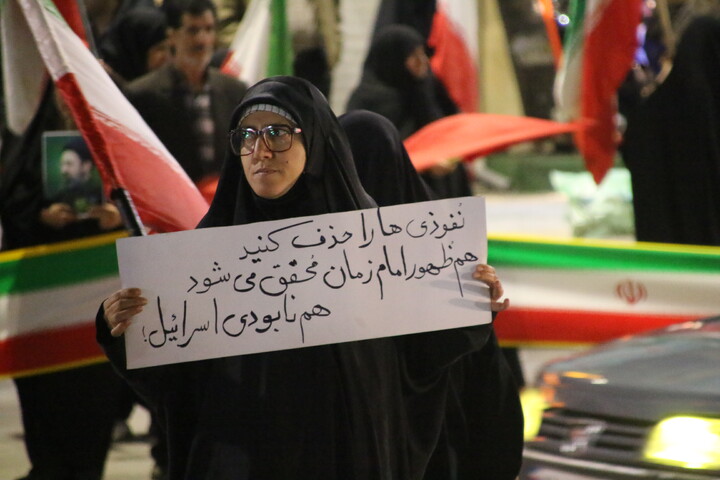 نُفوذی ها را حذف کنید
هم ظهور امام زمان مُحقّق می شود
هم نابودی اسرائیل!